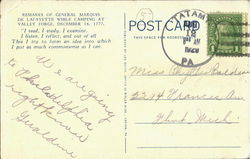 REMARKS OF GENERAL MARQUIS
DE LAFAYETTE WHILE CAMPING AT
VALLEY FORGE, DECEMBER 16, 1777.
"I read, I study, I examine
I listen, I reflect, and out of all
This I try to form an idea into which
I put as much commonsense as I can.
We are going
to Philadelphia
right now
POST CARD
TATAMY
PA
Miss
2214 Francis Ave
Flint, Mich.